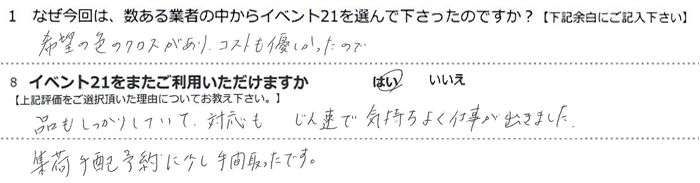 1 なぜ今回は、数ある業者の中からイベント21を選んで下さったのですか？【下記余白にご記入下さい】
希望の色のクロスがあり、コストも優しかったので
8 イベント21をまたご利用いただけますか はい いいえ
【上記評価をご選択頂いた理由についてお教え下さい。】
品もしっかりしていて、対応も じん速で気持ちよく仕事が出きました。
集荷手配予約に少し手間取ったです。